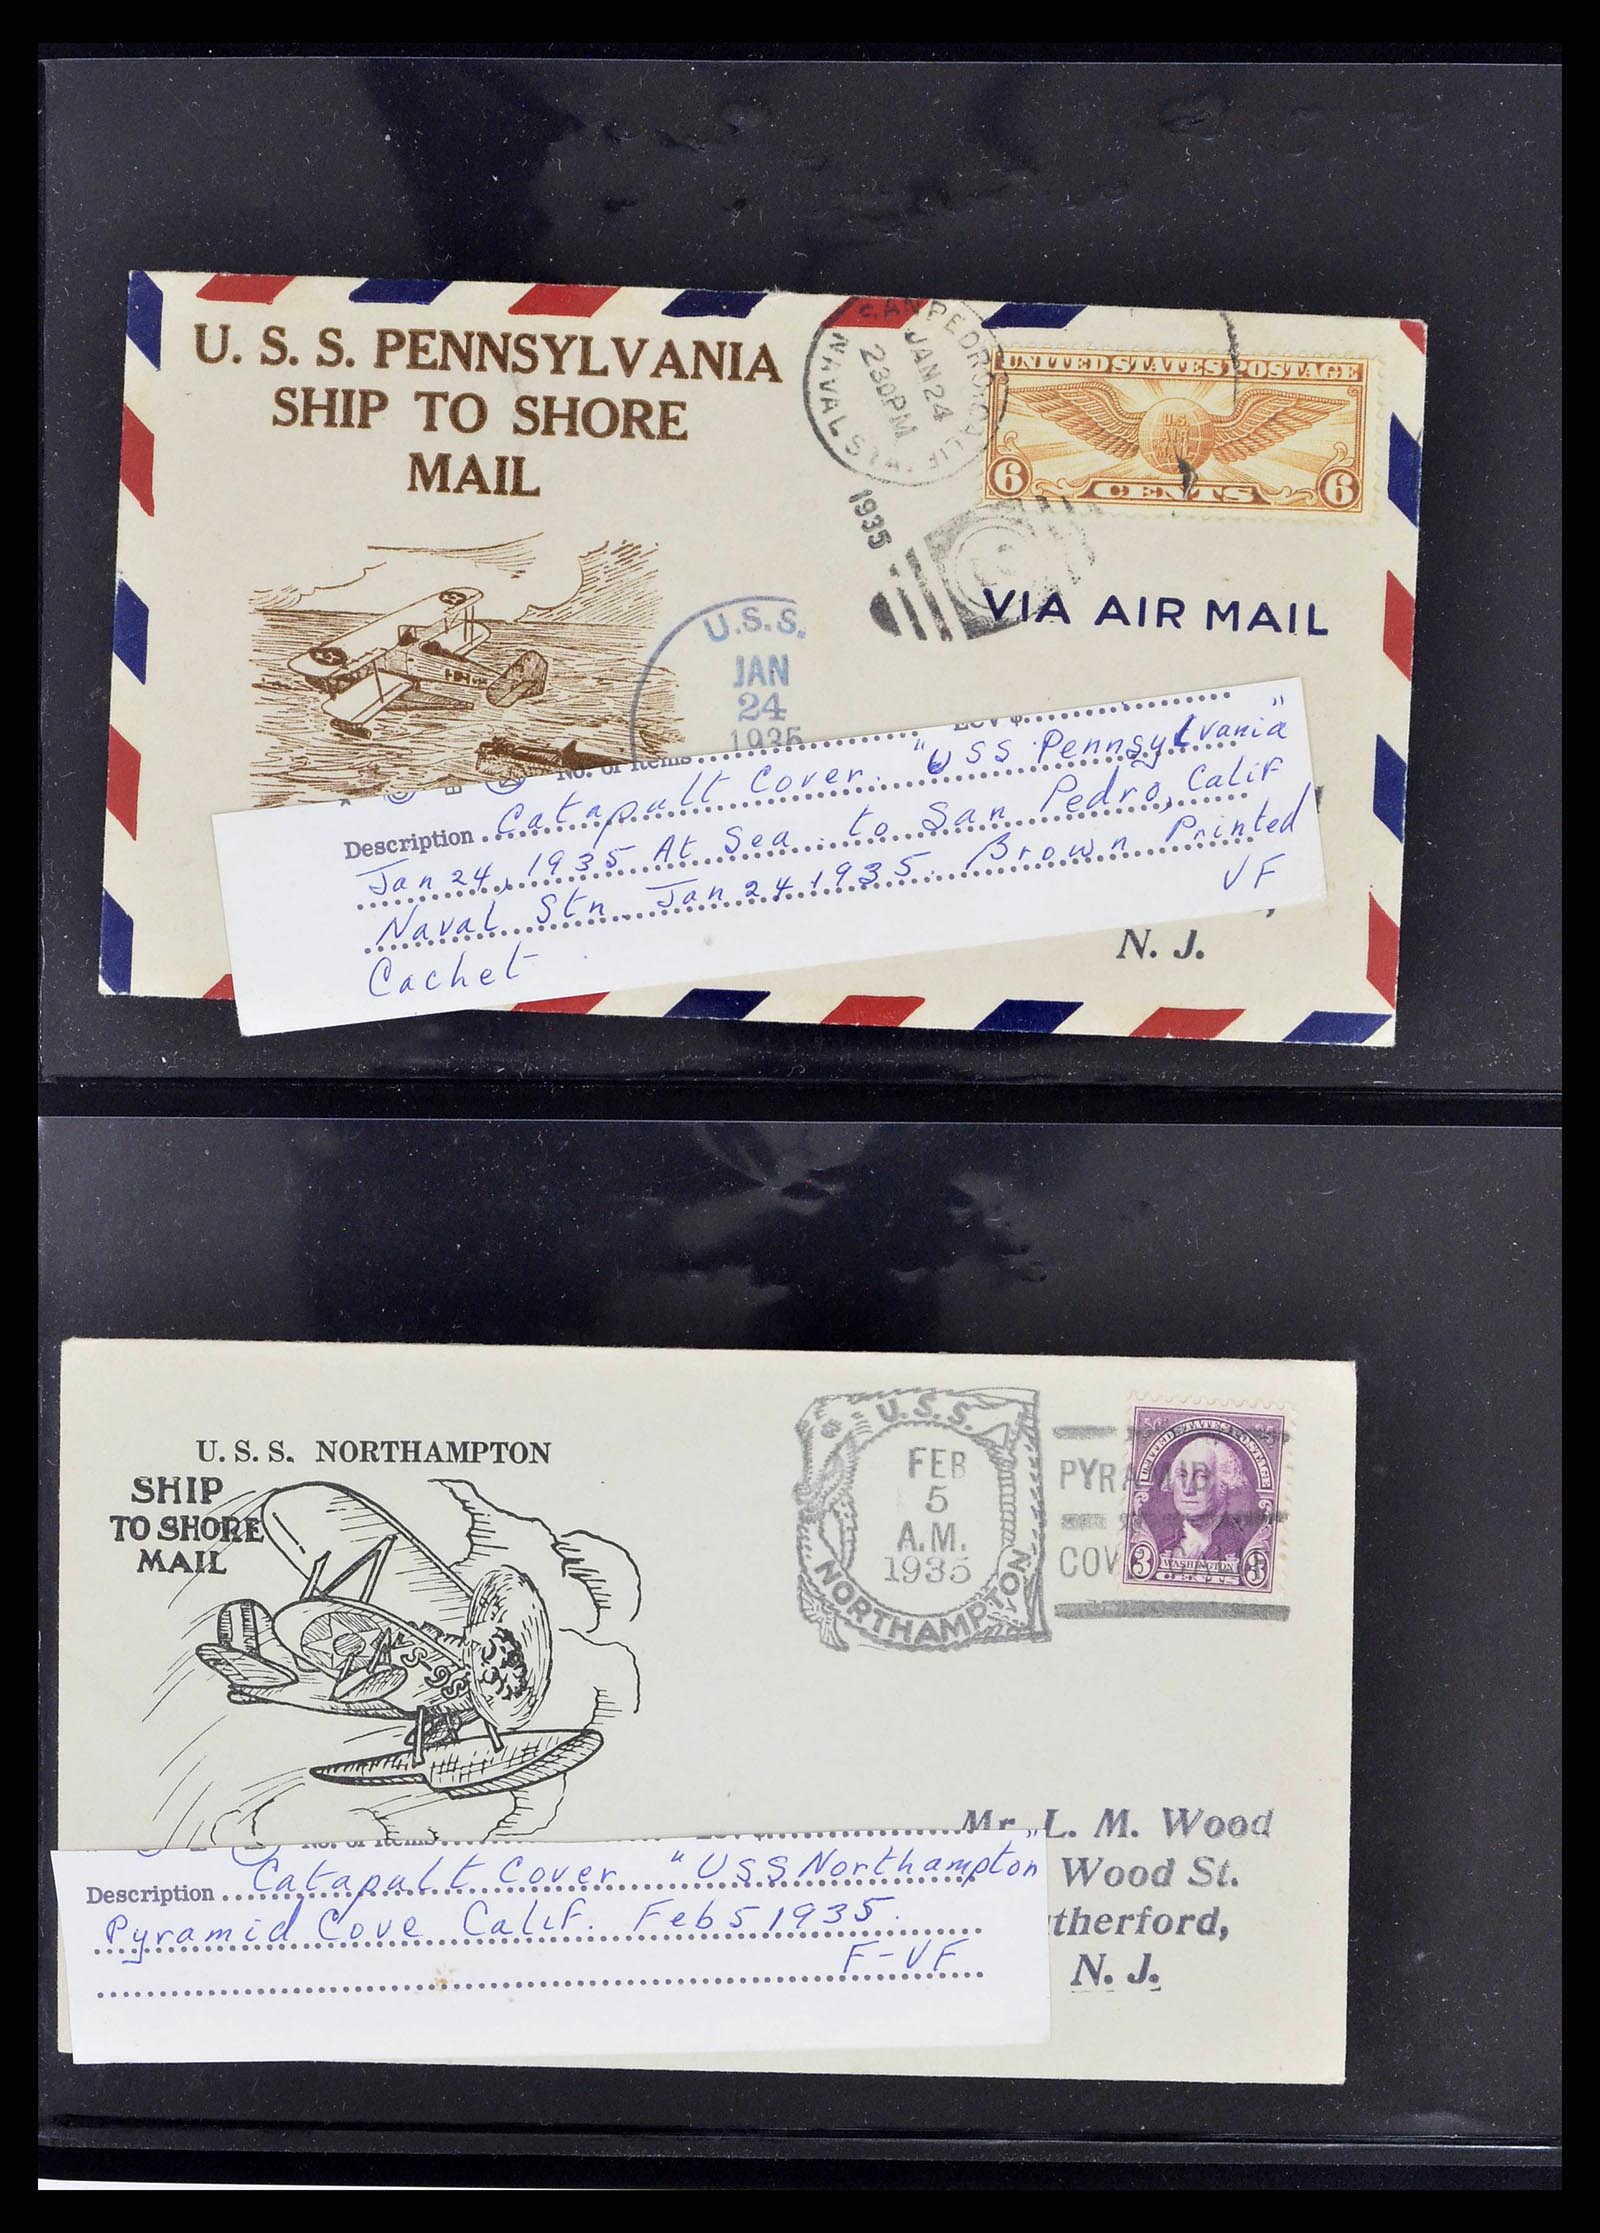 U. S. S. PENNSYLVANIA
SHIP TO SHORE
MAIL
SAN PEDRO, CALIF.
JAN 24
2 30 PM
NAVAL STA.
1935
UNITED STATES POSTAGE
U.S.
AIR
MAIL
6 CENTS 6
VIA AIR MAIL
U.S.S.
JAN
24
1935
No. of Items
Description Catapult Cover. "USS Pennsylvania"
Jan 24, 1935 At Sea to San Pedro, Calif
Naval Stn. Jan 24 1935. Brown Printed
Cachet VF
N. J.
U. S. S. NORTHAMPTON
SHIP
TO SHORE
MAIL
U.S.S.
FEB
5
A.M.
1935
NORTHAMPTON
PYRAMID
COVE
UNITED STATES POSTAGE
WASHINGTON
3 CENTS 3
No. of Items
Mr. L. M. Wood
Wood St.
therford,
N. J.
Description Catapult Cover "USS Northampton"
Pyramid Cove Calif. Feb 5 1935.
F-VF